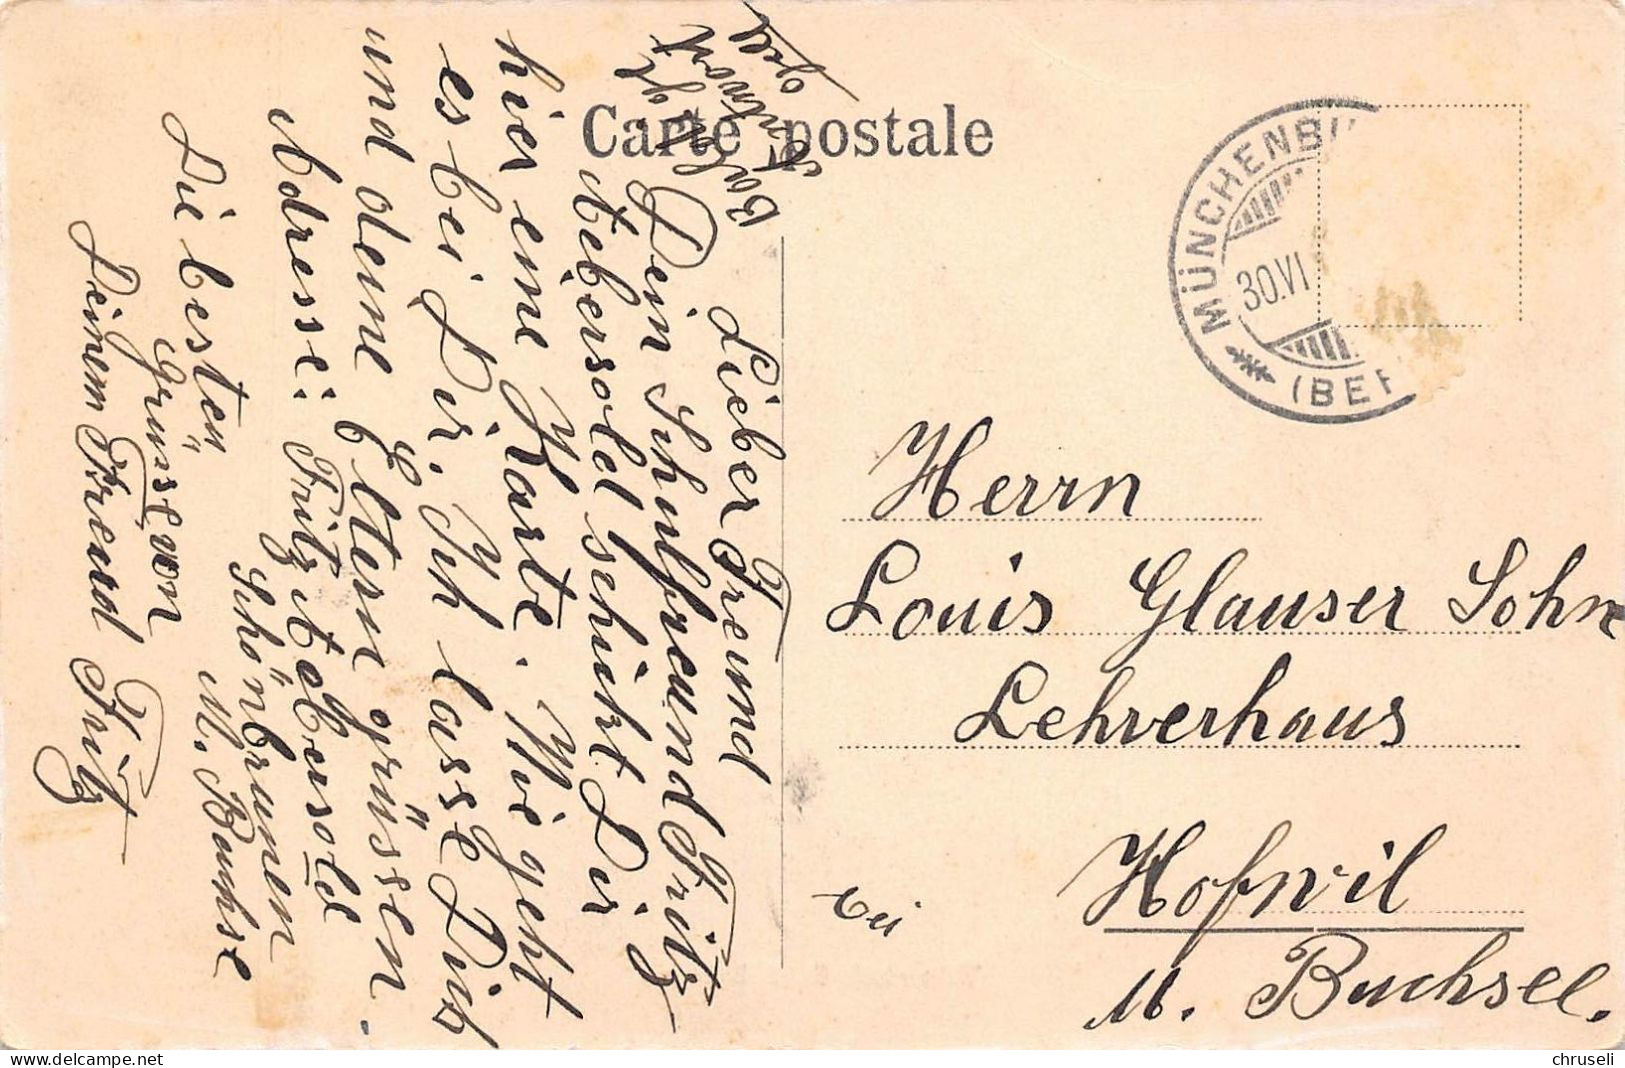 Carte postale
MÜNCHENBU
30.VI
(BER
Baldige
Antwort
gell
Lieber Freund
Dein Schulfreund Fritz
Aebersold schickt Dir
hier eine Karte. Wie geht
es bei Dir. Ich lasse Dich
und deine Eltern grüssen.
Adresse: Fritz Aebersold
Schönbrunnen
M. Buchse
Die besten
Grüsse von
Deinem Freund Fritz
Herrn
Louis Glauser Sohn
Lehrerhaus
bei
Hofwil
M. Buchsee.
chruseli